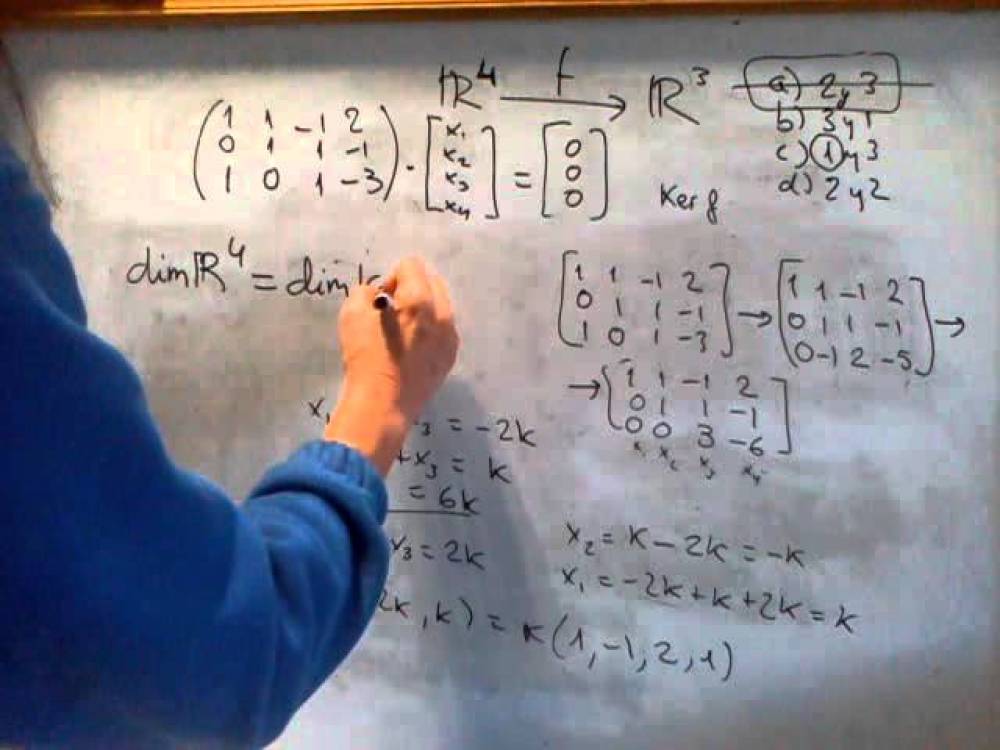 ℝ⁴ —f→ ℝ³
a) 2 y 3
b) 3 y 1
c) 1 y 3
d) 2 y 2
( 1 1 -1 2 ) · [ x₁ ] = [ 0 ]
( 0 1 1 -1 ) [ x₂ ] [ 0 ]
( 1 0 1 -3 ) [ x₃ ] [ 0 ]
[ x₄ ]
Ker f
dim ℝ⁴ = dim
[ 1 1 -1 2 ] → [ 1 1 -1 2 ] →
[ 0 1 1 -1 ] [ 0 1 1 -1 ]
[ 1 0 1 -3 ] [ 0 -1 2 -5 ]
→ [ 1 1 -1 2 ]
[ 0 1 1 -1 ]
[ 0 0 3 -6 ]
x₁ x₂ x₃ x₄
= -2k
+x₃ = k
= 6k
x₃ = 2k
x₂ = k - 2k = -k
x₁ = -2k + k + 2k = k
2k, k) = k(1, -1, 2, 1)